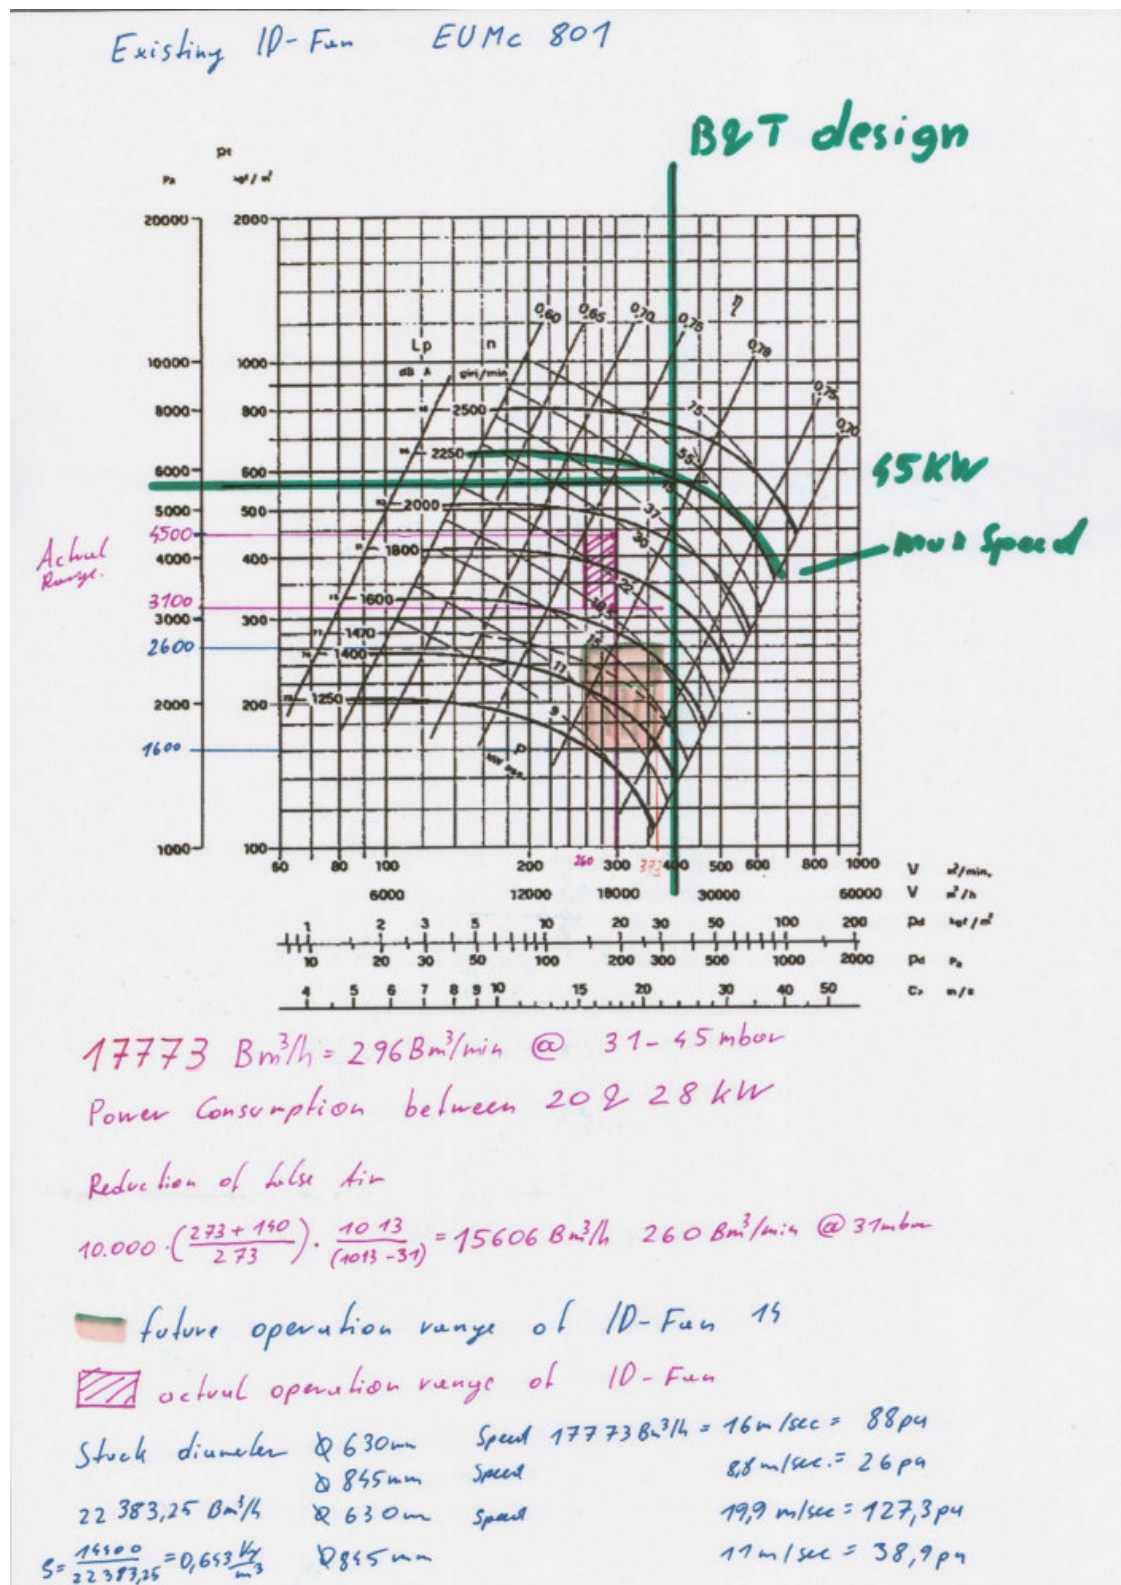 Existing ID-Fan EUMc 801
B&T design
pt
Pa kgf/m²
20000 2000
10000 1000
8000 800
6000 600
5000 500
4500
4000 400
3100
3000 300
2600
2000 200
1600
1000 100
Actual
Range.
Lp n
dB A giri/min
2500
2250
2000
1800
1600
1470
1400
1250
0,60 0,65 0,70 0,75 η
0,78
0,75
0,70
75
55
45 KW
37
30
22
18,5
15
11
9
P
Max Speed
60 80 100 200 260 300 373 400 500 600 800 1000 V m³/min.
6000 12000 18000 30000 60000 V m³/h
1 2 3 5 10 20 30 50 100 200 Pd kgf/m²
10 20 30 50 100 200 300 500 1000 2000 Pd Pa
4 5 6 7 8 9 10 15 20 30 40 50 C₂ m/s
17773 Bm³/h = 296 Bm³/min @ 31-45 mbar
Power Consumption between 20 & 28 KW
Reduction of false Air
10.000 · (273 + 140 / 273) · 1013 / (1013 - 31) = 15606 Bm³/h 260 Bm³/min @ 31mbar
future operation range of ID-Fan 14
actual operation range of ID-Fan
Stack diameter Ø 630mm Speed 17773 Bm³/h = 16m/sec = 88pa
Ø 845mm Speed 8,8 m/sec. = 26pa
22 383,25 Bm³/h Ø 630m Speed 19,9 m/sec = 127,3pa
S = 14400 / 22383,25 = 0,643 Kg/m³ Ø 845mm 11m/sec = 38,9pa